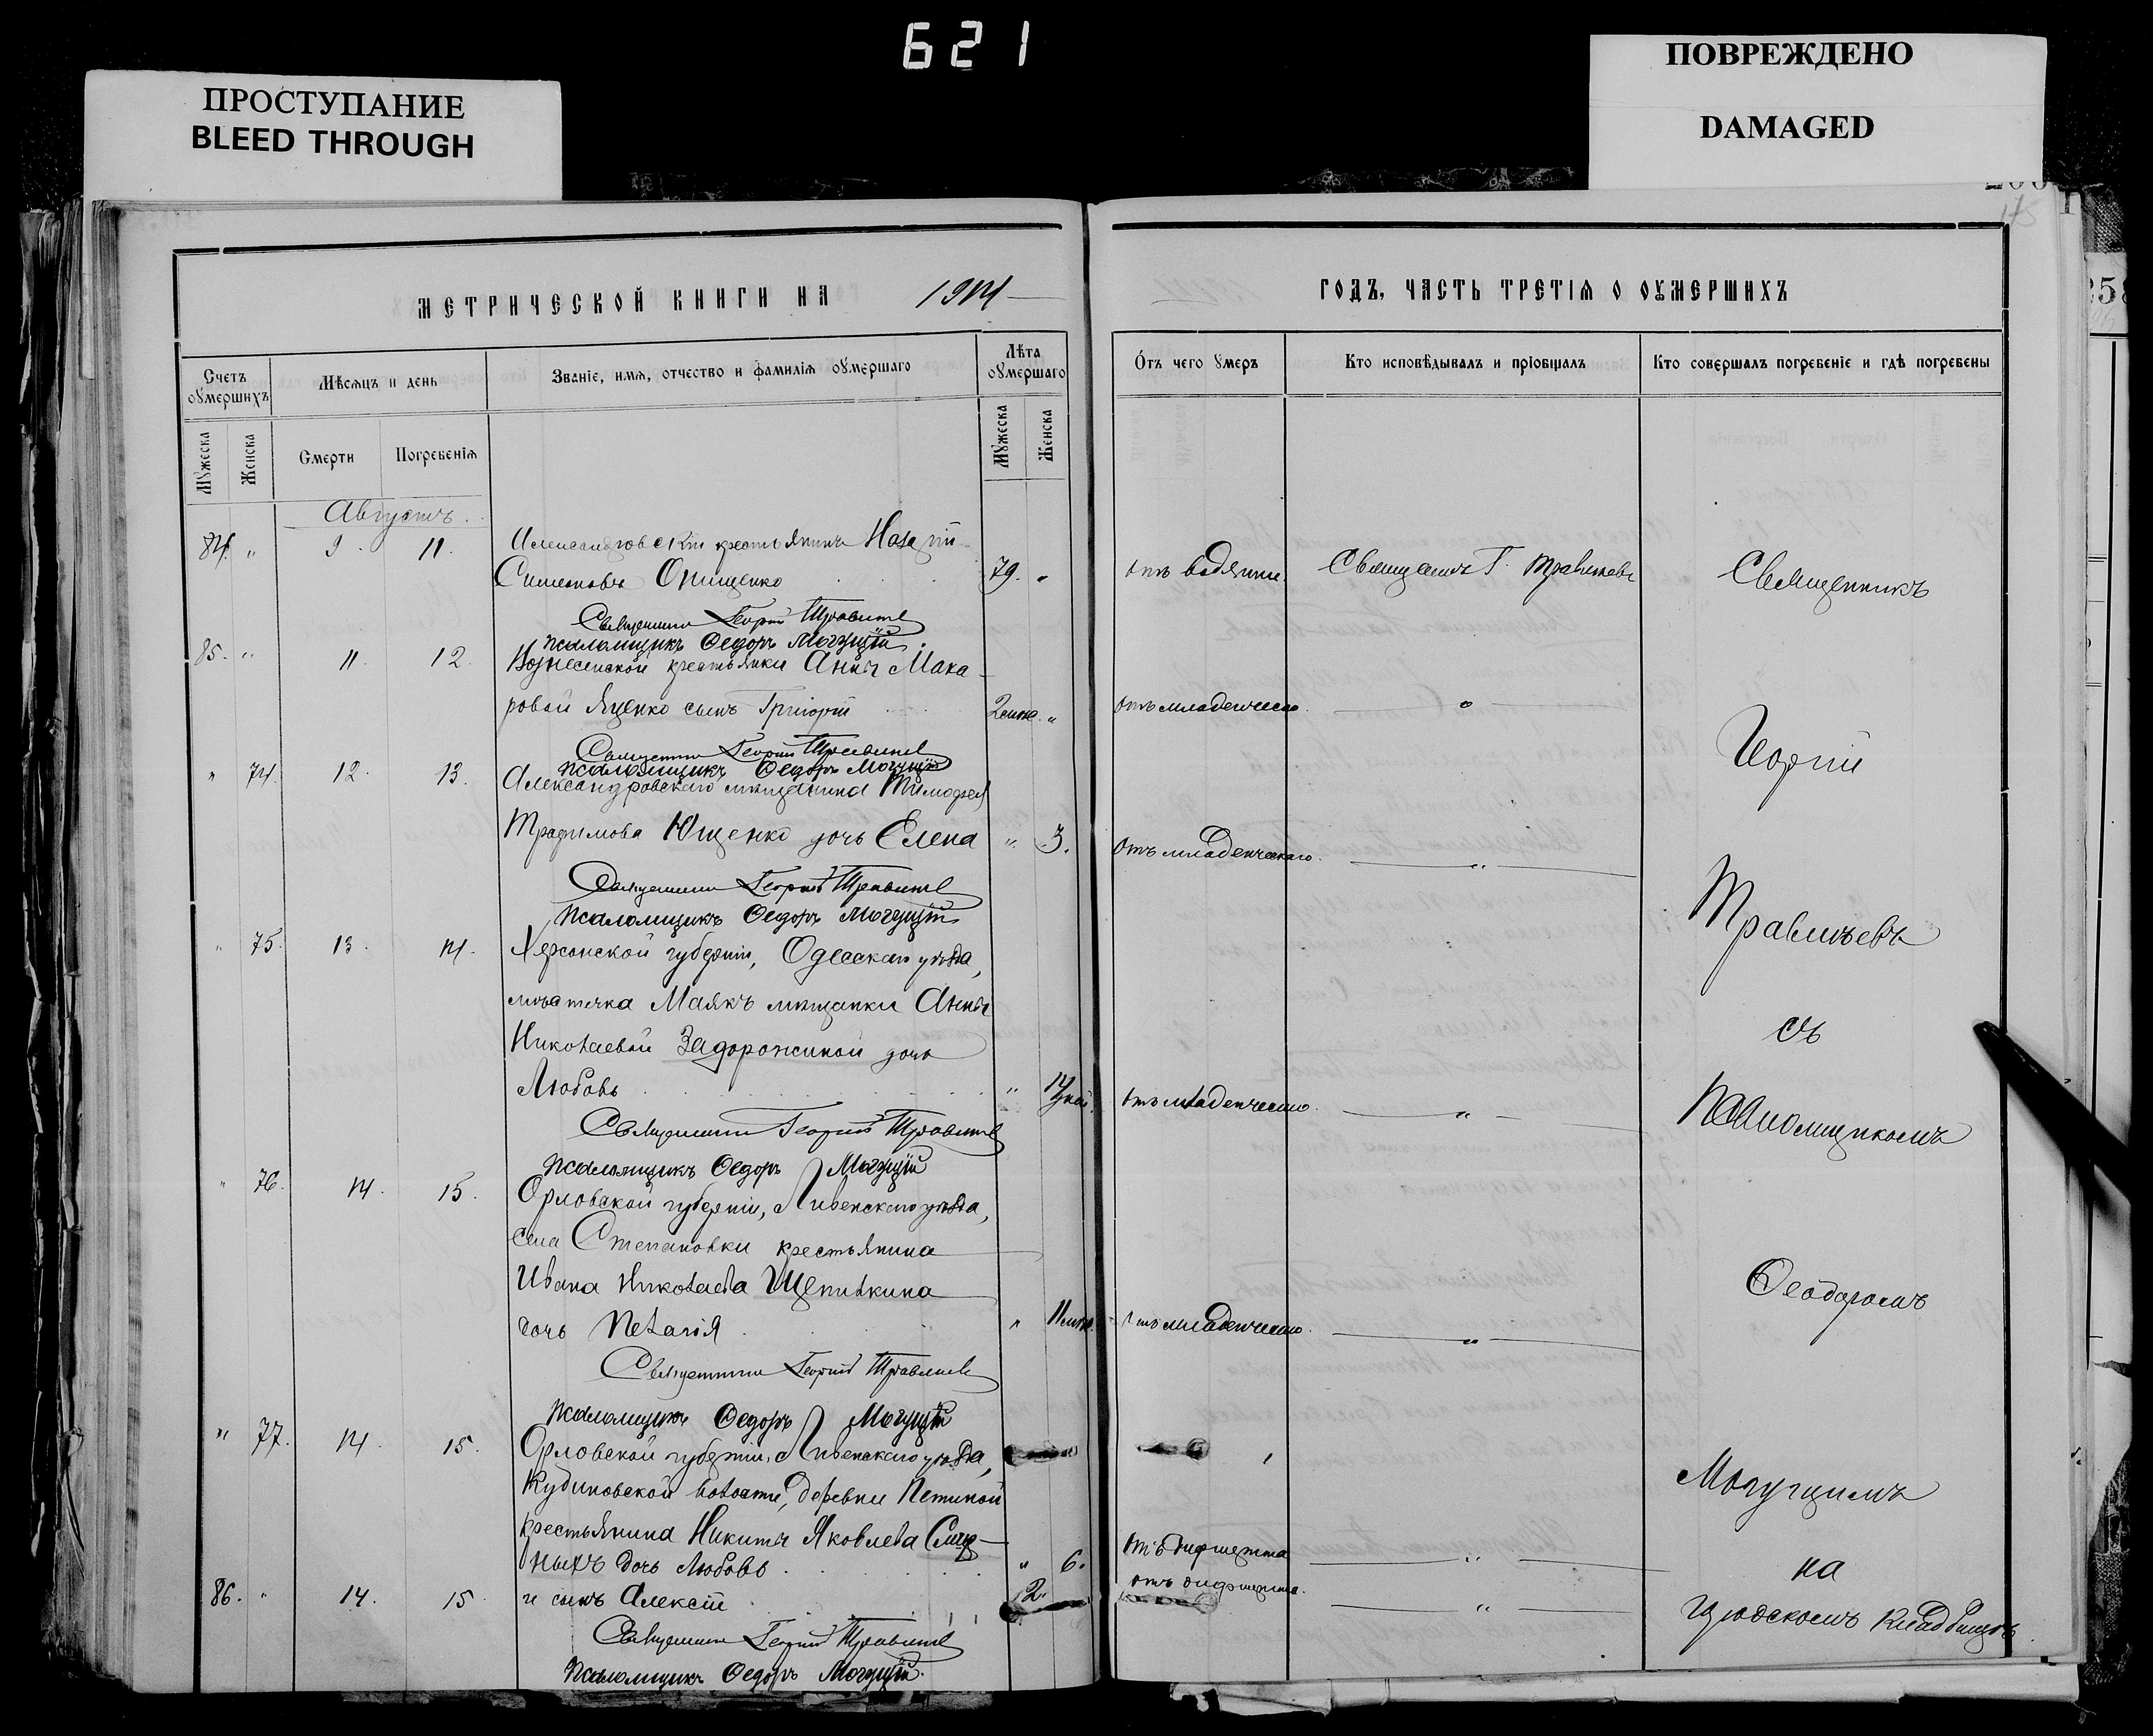 621
ПРОСТУПАНИЕ
BLEED THROUGH
ПОВРЕЖДЕНО
DAMAGED
МЕТРИЧЕСКОЙ КНИГИ НА 1914
ГОДЪ, ЧАСТЬ ТРЕТІЯ О ОУМЕРШИХЪ
Счетъ оумершихъ
Мѣсяцъ и день
Званіе, имя, отчество и фамилія оумершаго
Лѣта оумершаго
Отъ чего умеръ
Кто исповѣдывалъ и пріобщалъ
Кто совершалъ погребеніе и гдѣ погребены
Мужеска
Женска
Смерти
Погребенія
Мужеска
Женска
Августъ.
84. " 9. 11. Александровскій крестьянинъ Назарій
Симеоновъ Онищенко 79. " отъ водянки. Священникъ Г. Травлѣевъ
Священникъ Георгій Травлѣевъ
псаломщикъ Ѳедоръ Могущій
85. " 11. 12. Вознесенской крестьянки Анны Мака-
ровой Яценко сынъ Григорій 2 мѣс. " отъ младенческ. "
Священникъ Георгій Травлѣевъ
псаломщикъ Ѳедоръ Могущій
" 74. 12. 13. Александровскаго мѣщанина Тимофея
Трофимова Ющенко дочь Елена " 3. отъ младенческаго. "
Священникъ Георгій Травлѣевъ
псаломщикъ Ѳедоръ Могущій
" 75. 13. 14. Херсонской губерніи, Одесскаго уѣзда,
мѣстечка Маякъ мѣщанки Анны
Николаевой Задорожнной дочь
Любовь " отъ младенческ. "
Священникъ Георгій Травлѣевъ
псаломщикъ Ѳедоръ Могущій
" 76. 14. 15. Орловской губерніи, Ливенскаго уѣзда,
села Степановки крестьянина
Ивана Николаева Щепилкина
дочь Пелагія " 11 мѣс. отъ младенческ. "
Священникъ Георгій Травлѣевъ
псаломщикъ Ѳедоръ Могущій
" 77. 14. 15. Орловской губерніи, Ливенскаго уѣзда,
Кудиновской волости, деревни Петиной
крестьянина Никиты Яковлева
ныхъ дочь Любовь " 6. отъ дифтерита "
86. " 14. 15 и сынъ Алексій 2. отъ дифтерита. "
Священникъ Георгій Травлѣевъ
псаломщикъ Ѳедоръ Могущій.
Священникъ
Георгій
Травлѣевъ
съ
Псаломщикомъ
Ѳеодоромъ
Могущимъ
на
городскомъ кладбищѣ.